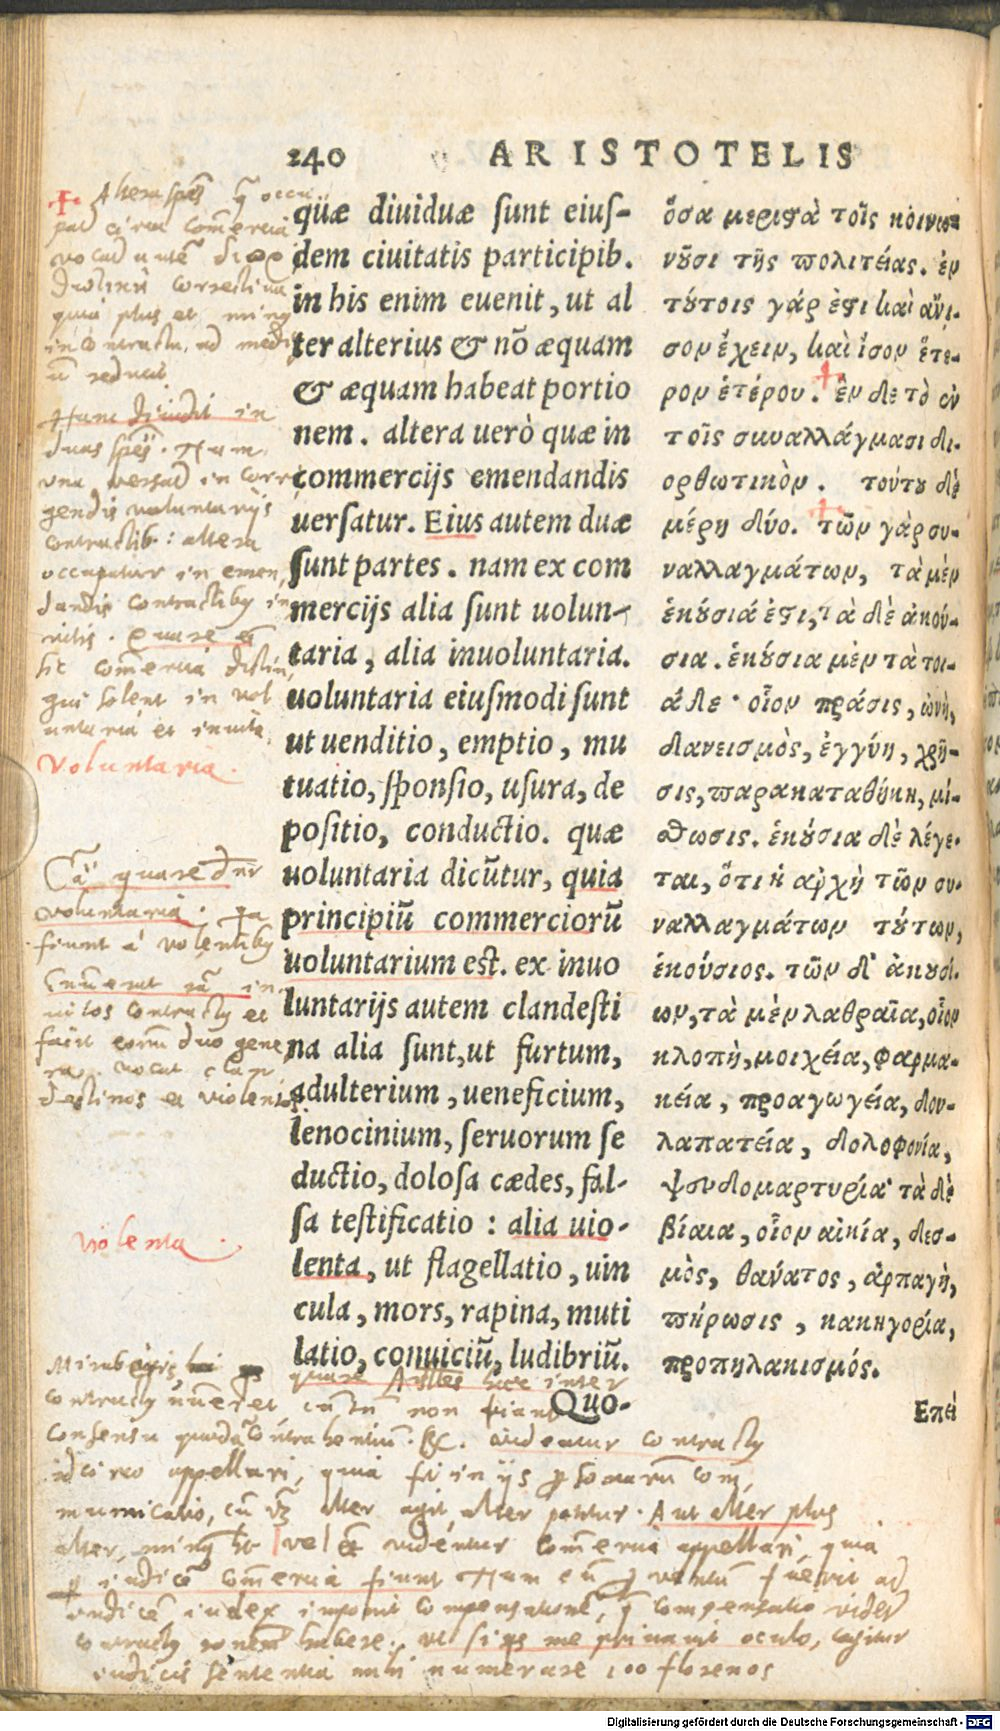 240 ARISTOTELIS
quæ diuiduæ sunt eius-
dem ciuitatis particip̃ib.
in his enim euenit, ut al
ter alterius & nõ æquam
& æquam habeat portio
nem. altera uerò quæ in
commercijs emendandis
uersatur. Eius autem duæ
sunt partes. nam ex com
mercijs alia sunt uolun-
taria, alia inuoluntaria.
uoluntaria eiusmodi sunt
ut uenditio, emptio, mu
tuatio, sponsio, usura, de
positio, conductio. quæ
uoluntaria dicũtur, quia
principiũ commerciorũ
uoluntarium est. ex inuo
luntarijs autem clandesti
na alia sunt, ut furtum,
adulterium, ueneficium,
lenocinium, seruorum se
ductio, dolosa cædes, fal-
sa testificatio : alia uio-
lenta, ut flagellatio, uin
cula, mors, rapina, muti
latio, conuiciũ, ludibriũ.
Quo-
ὅσα μεριστὰ τοῖς κοινω-
νοῦσι τῆς πολιτείας. ἐν
τούτοις γάρ ἐστι καὶ ἄνι-
σον ἔχειν, καὶ ἴσον ἕτε-
ρον ἑτέρου. ἓν δὲ τὸ ἐν
τοῖς συναλλάγμασι δι-
ορθωτικὸν. τούτου δὲ
μέρη δύο. τῶν γὰρ συ-
ναλλαγμάτων, τὰ μὲν
ἑκούσιά ἐστι, τὰ δὲ ἀκού-
σια. ἑκούσια μὲν τὰ τοι-
άδε· οἷον πρᾶσις, ὠνὴ,
δανεισμὸς, ἐγγύη, χρῆ-
σις, παρακαταθήκη, μί-
σθωσις. ἑκούσια δὲ λέγε-
ται, ὅτι ἡ ἀρχὴ τῶν συ-
ναλλαγμάτων τούτων,
ἑκούσιος. τῶν δ' ἀκουσί-
ων, τὰ μὲν λαθραῖα, οἷον
κλοπὴ, μοιχεία, φαρμα-
κεία, προαγωγεία, δου-
λαπατεία, δολοφονία,
ψευδομαρτυρία· τὰ δὲ
βίαια, οἷον αἰκία, δεσ-
μὸς, θάνατος, ἁρπαγὴ,
πήρωσις, κακηγορία,
προπηλακισμός.
Ἐπεὶ
Hanc diuidit in
duas
una versat̃ in corri
gendis voluntarijs
contractib: altera
occupatur in emen
dandis contractibus in
uitis. Quare et
hic com̃ercia distin
gui solent in vol
untaria et inuita.
Voluntaria.
quare
voluntaria.
fiunt à volentibus
in
uitos contractus et
facit eorum duo gene
ra. vocat clan
destinos et violentos.
violenta.
quare Aristoteles hæc inter
contractus non fiant
consensu contrahentium. videantur contractus
idcirco appellari, quia fit in ijs com
municatio, alter agit, alter patitur. Aut alter plus
alter, minus vel videntur com̃ercia appellari, quia
com̃ercia fiunt Nam
iudex imponit compensationem, compensatio
contractus habere, ut si me priuauit oculo, cogitur
iudicis sententia mihi numerare 100 florenos
Digitalisierung gefördert durch die Deutsche Forschungsgemeinschaft - DFG